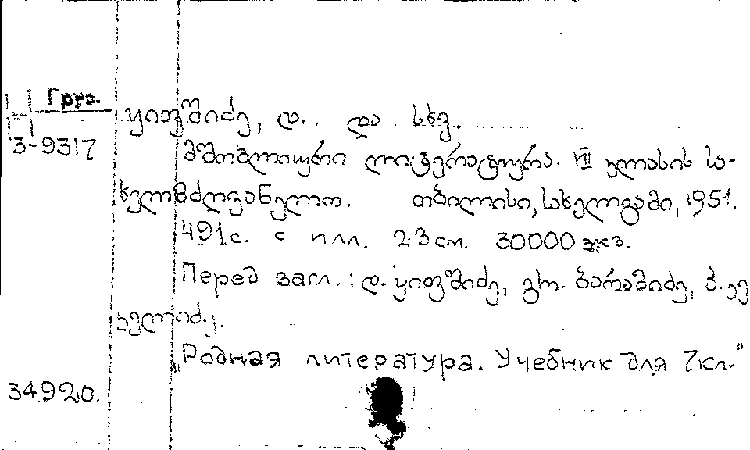 Груз.
Н
3-9317
ყიფშიძე, დ. და სხვ.
მშობლიური ლიტერატურა. VII კლასის სა-
ხელმძღვანელო. თბილისი, სახელგამი, 1951.
491с. с илл. 23см. 30000 экз.
Перед загл.: დ. ყიფშიძე, გრ. ბარამიძე,
„Родная литература. Учебник для 7кл."
34920.